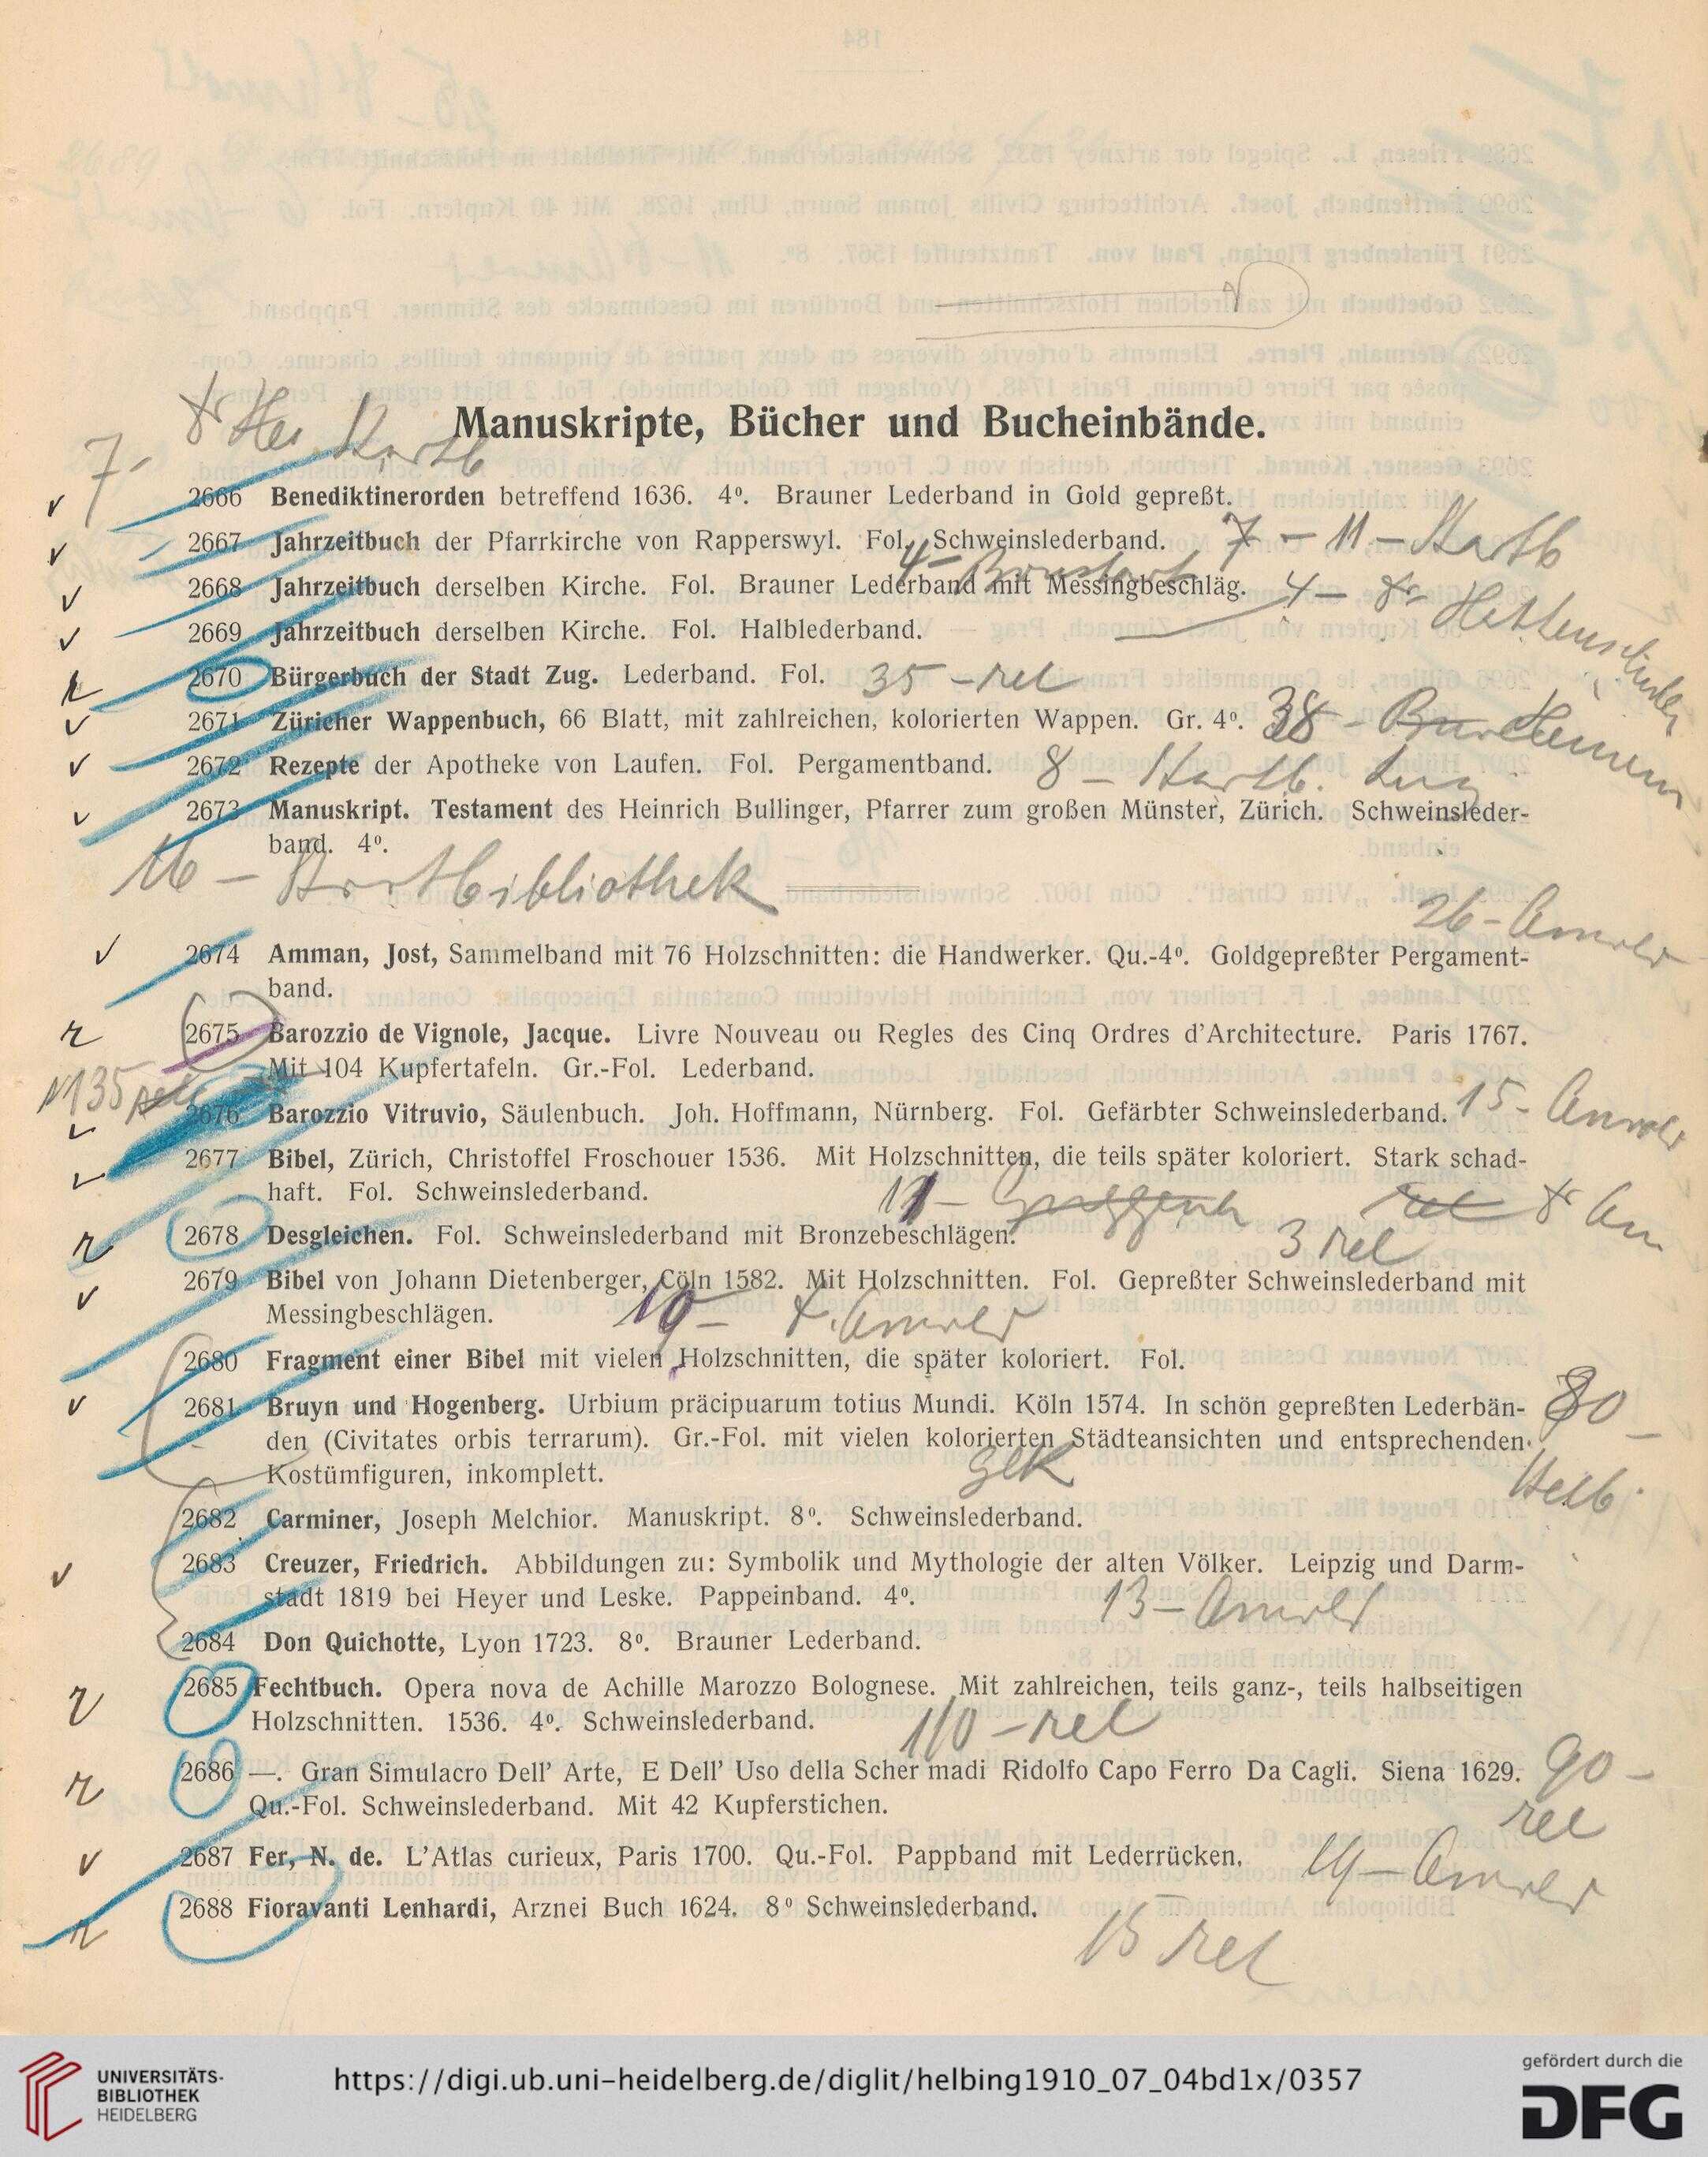 Manuskripte, Bücher und Bucheinbände.
7-
2666 Benediktinerorden betreffend 1636. 4⁰. Brauner Lederband in Gold gepreßt.
2667 Jahrzeitbuch der Pfarrkirche von Rapperswyl. Fol. Schweinslederband. 7 – 11 –
2668 Jahrzeitbuch derselben Kirche. Fol. Brauner Lederband mit Messingbeschläg. 4 –
2669 Jahrzeitbuch derselben Kirche. Fol. Halblederband.
2670 Bürgerbuch der Stadt Zug. Lederband. Fol. 35 – rel
2671 Züricher Wappenbuch, 66 Blatt, mit zahlreichen, kolorierten Wappen. Gr. 4⁰. 38 -
2672 Rezepte der Apotheke von Laufen. Fol. Pergamentband. 8 –
2673 Manuskript. Testament des Heinrich Bullinger, Pfarrer zum großen Münster, Zürich. Schweinsleder-
band. 4⁰.
16 –
26 -
2674 Amman, Jost, Sammelband mit 76 Holzschnitten: die Handwerker. Qu.-4⁰. Goldgepreßter Pergament-
band.
2675 Barozzio de Vignole, Jacque. Livre Nouveau ou Regles des Cinq Ordres d'Architecture. Paris 1767.
Mit 104 Kupfertafeln. Gr.-Fol. Lederband.
2676 Barozzio Vitruvio, Säulenbuch. Joh. Hoffmann, Nürnberg. Fol. Gefärbter Schweinslederband. 15 -
2677 Bibel, Zürich, Christoffel Froschouer 1536. Mit Holzschnitten, die teils später koloriert. Stark schad-
haft. Fol. Schweinslederband. 11 –
2678 Desgleichen. Fol. Schweinslederband mit Bronzebeschlägen. 3 rel
2679 Bibel von Johann Dietenberger, Cöln 1582. Mit Holzschnitten. Fol. Gepreßter Schweinslederband mit
Messingbeschlägen. 19 –
2680 Fragment einer Bibel mit vielen Holzschnitten, die später koloriert. Fol.
2681 Bruyn und Hogenberg. Urbium präcipuarum totius Mundi. Köln 1574. In schön gepreßten Lederbän- 80 –
den (Civitates orbis terrarum). Gr.-Fol. mit vielen kolorierten Städteansichten und entsprechenden
Kostümfiguren, inkomplett. Helb.
2682 Carminer, Joseph Melchior. Manuskript. 8⁰. Schweinslederband.
2683 Creuzer, Friedrich. Abbildungen zu: Symbolik und Mythologie der alten Völker. Leipzig und Darm-
stadt 1819 bei Heyer und Leske. Pappeinband. 4⁰. 13 –
2684 Don Quichotte, Lyon 1723. 8⁰. Brauner Lederband.
2685 Fechtbuch. Opera nova de Achille Marozzo Bolognese. Mit zahlreichen, teils ganz-, teils halbseitigen
Holzschnitten. 1536. 4⁰. Schweinslederband. 110 – rel
2686 —. Gran Simulacro Dell' Arte, E Dell' Uso della Scher madi Ridolfo Capo Ferro Da Cagli. Siena 1629. 90 –
Qu.-Fol. Schweinslederband. Mit 42 Kupferstichen. rel
2687 Fer, N. de. L'Atlas curieux, Paris 1700. Qu.-Fol. Pappband mit Lederrücken. 19 –
2688 Fioravanti Lenhardi, Arznei Buch 1624. 8⁰ Schweinslederband.
15 rel
UNIVERSITÄTS-
BIBLIOTHEK
HEIDELBERG
https://digi.ub.uni-heidelberg.de/diglit/helbing1910_07_04bd1x/0357
gefördert durch die
DFG